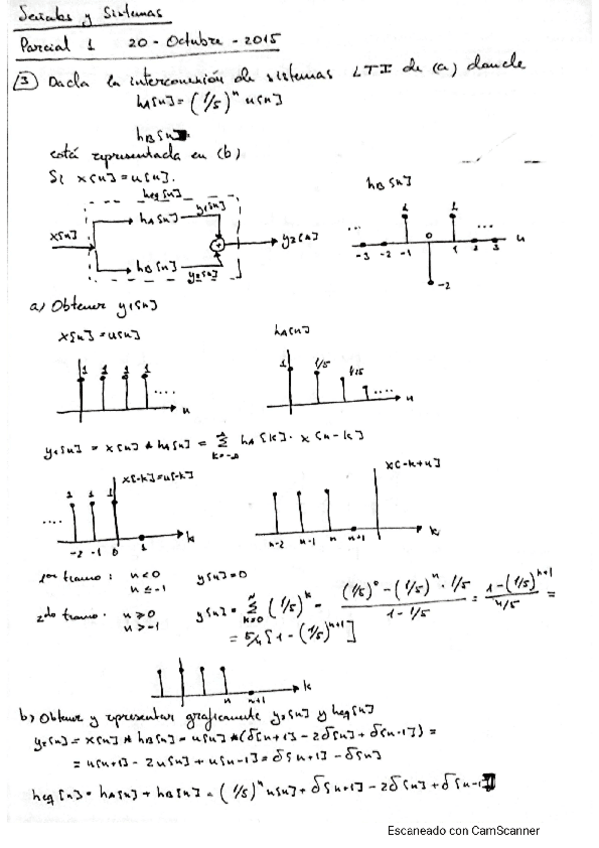 Señales y Sistemas
Parcial 1 20-Octubre-2015
③ Dada la interconexión de sistemas LTI de (a) donde
hA[n] = (1/5)^n u[n]
hB[n]
está representada en (b)
Si x[n] = u[n].
heq[n]
y1[n]
hB[n]
x[n] hA[n] + y2[n]
hB[n] y2[n]
1 0 1
... ... n
-3 -2 -1 1 2 3
-2
a) Obtener y1[n]
x[n] = u[n] hA[n]
1 1 1 1 .... n
1 1/5 1/25 .... n
y1[n] = x[n] * hA[n] = Σ k=-∞ ∞ hA[k] · x[n-k]
x[-k] = u[-k] x[-k+n]
1 1 1
.... k k
-2 -1 0 1 n-2 n-1 n n+1
1er tramo: n<0 y[n]=0
n ≤ -1
2do tramo: n ≥ 0 y[n] = Σ k=0 n (1/5)^k = ((1/5)^0 - (1/5)^n · 1/5)/(1 - 1/5) = (1-(1/5)^n+1)/(4/5) =
n > -1 = 5/4 [1 - (1/5)^n+1]
n n+1 k
b) Obtener y representar gráficamente y2[n] y heq[n]
y2[n] = x[n] * hB[n] = u[n] * (δ[n+1] - 2δ[n] + δ[n-1]) =
= u[n+1] - 2u[n] + u[n-1] = δ[n+1] - δ[n]
heq[n] = hA[n] + hB[n] = (1/5)^n u[n] + δ[n+1] - 2δ[n] + δ[n-1]
Escaneado con CamScanner